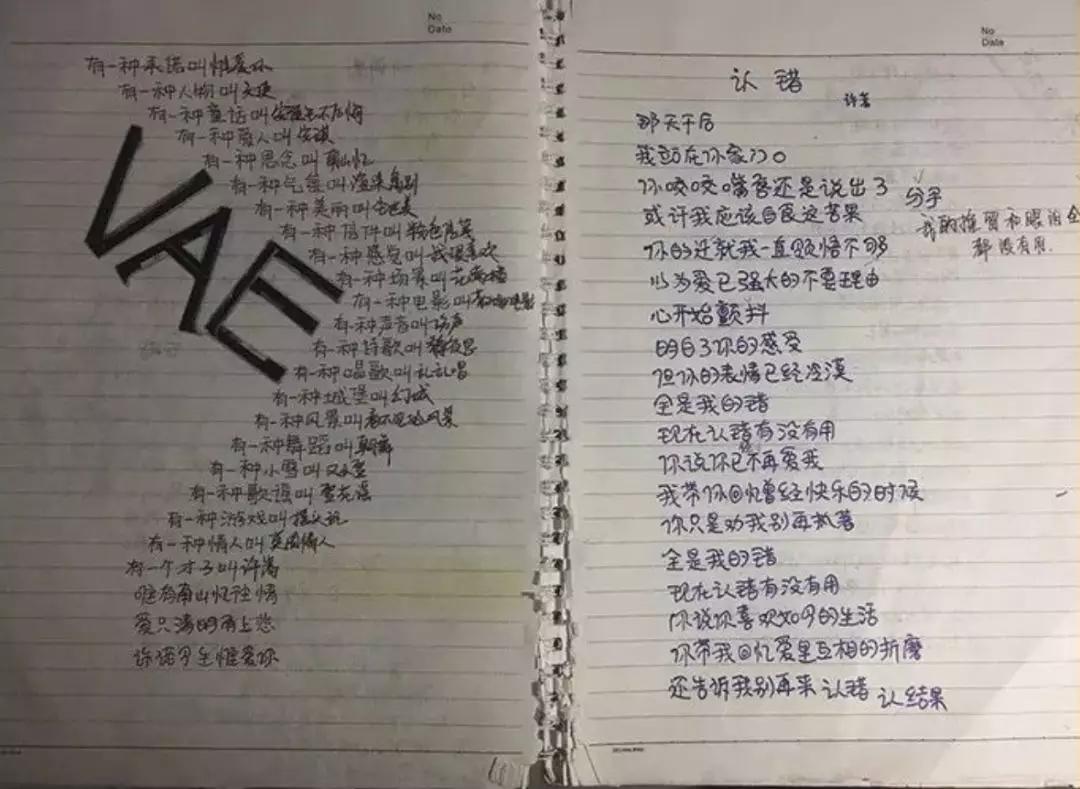 No
Date
有一种承诺叫惟爱你
有一种人物叫天使
有一种童话叫
有一种爱人叫安琪
有一种思念叫南山忆
有一种气氛叫渲染离别
有一种美丽叫
有一种信件叫粉色信笺
有一种感觉叫我很喜欢
有一种场景叫
有一种电影叫
有一种声音叫
有一种诗歌叫静夜思
有一种唱歌叫乱乱唱
有一种城堡叫幻城
有一种风景叫看不见的风景
有一种舞蹈叫
有一种小雪叫又小雪
有一种歌谣叫雪花谣
有一种游戏叫摇头玩
有一种情人叫
有一个才子叫许嵩
唯有南山忆
爱只
许诺
VAE
No
Date
认错
许嵩
那天午后
我站在你家门口
你咬咬嘴唇还是说出了分手
我的挽留和眼泪全都没有用
或许我应该自食这苦果
你的迁就我一直领悟不够
以为爱已强大的不要理由
心开始颤抖
明白了你的感受
但你的表情已经冷漠
全是我的错
现在认错有没有用
你说你已不再爱我
我带你回忆曾经快乐的时候
你只是劝我别再执著
全是我的错
现在认错有没有用
你说你喜欢如今的生活
你带我回忆爱里互相的折磨
还告诉我别再来认错 认结果